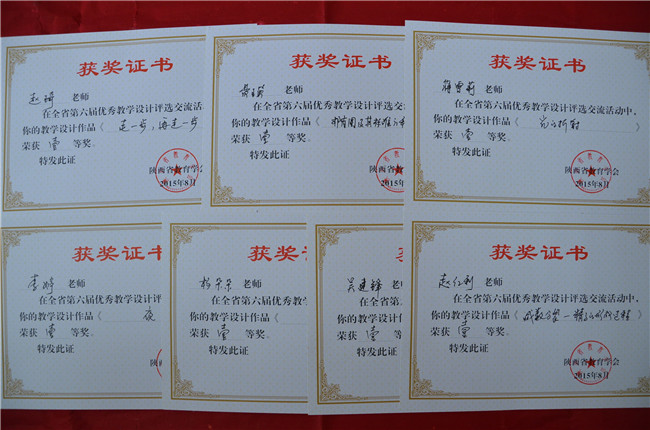 获奖证书
赵 老师
在全省第六届优秀教学设计评选交流活
你的教学设计作品《走一步，再走一步
荣获 壹 等奖。
特发此证
陕西省教育学会
2015年8月
获奖证书
老师
在全省第六届优秀教学设计评选交
你的教学设计作品《椭圆及其标准
荣获 壹 等奖。
特发此证
陕西省
2
获奖证书
老师
在全省第六届优秀教学设计评选交流活动中，
你的教学设计作品《光的折射》
荣获 壹 等奖。
特发此证
陕西省教育学会
2015年8月
获奖证书
李婷 老师
在全省第六届优秀教学设计评
你的教学设计作品《
荣获 壹 等奖。
特发此证
获奖证书
杨 老师
在全省第六届优秀教学设
你的教学设计作品《
荣获 壹 等奖。
特发此证
获
吴建锋 老
在全省第六届优
你的教学设计作
荣获 壹 等
特发此
获奖证书
赵红利 老师
在全省第六届优秀教学设计评选交流活动中，
你的教学设计作品《减数分裂—精子的形成过程》
荣获 壹 等奖。
特发此证
陕西省教育学会
2015年8月